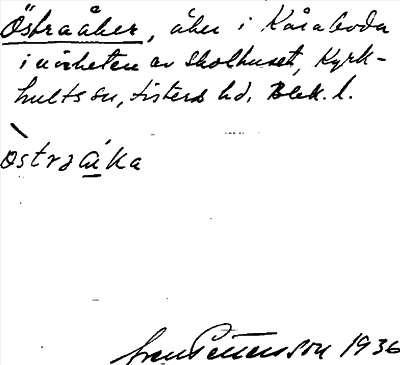 Östraåker, åker i Kåraboda
i närheten av skolhuset, Kyrk-
hults sn, Listers hd. Blek. l.
östraåka
Sven Pettersson 1936